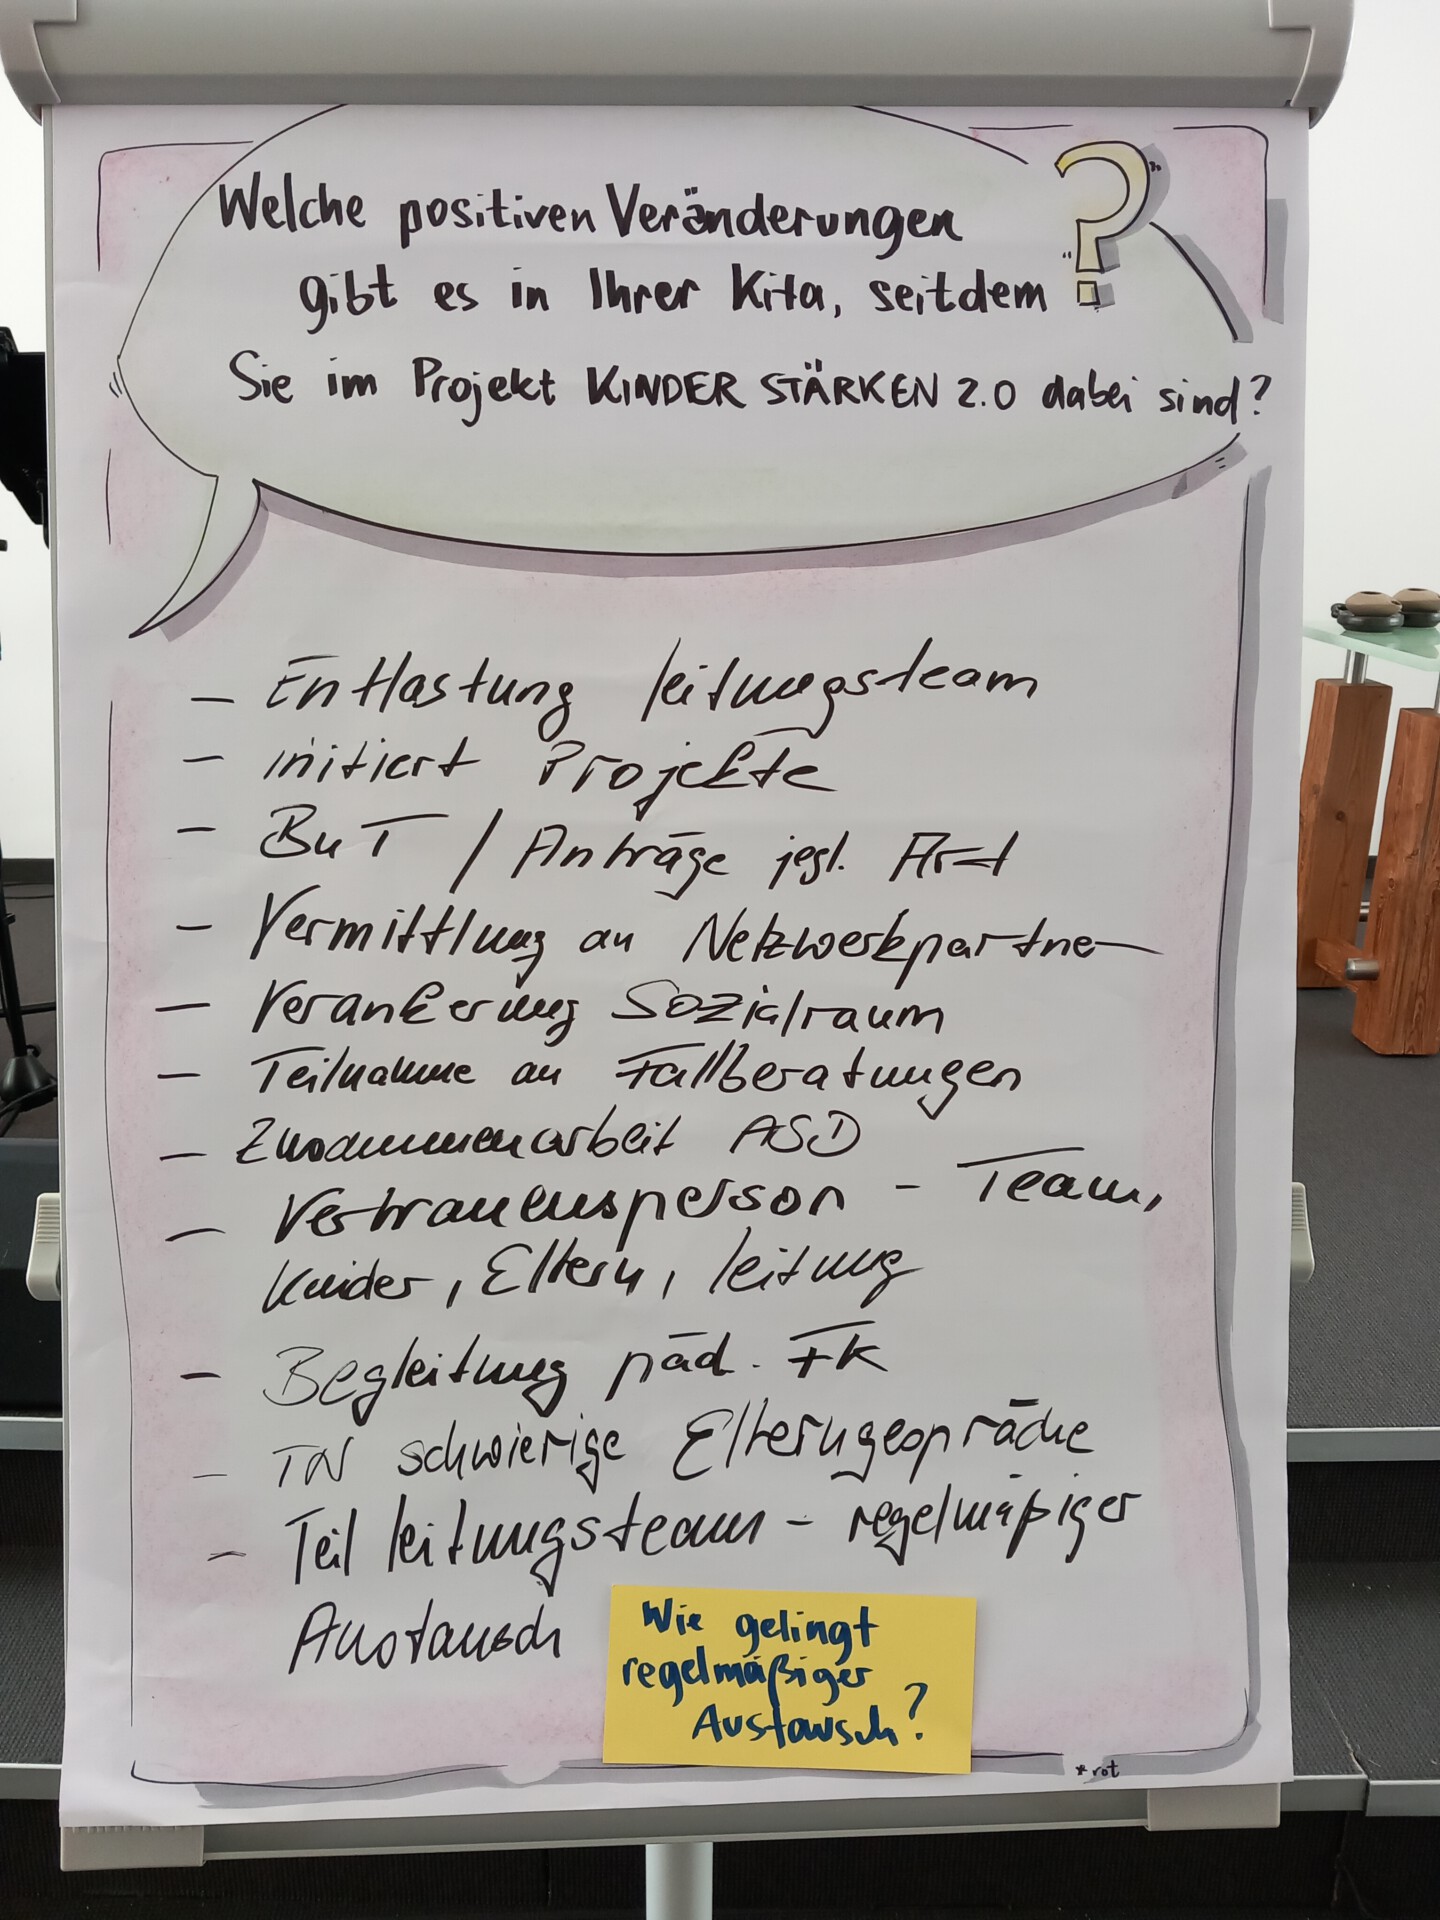 Welche positiven Veränderungen
gibt es in Ihrer Kita, seitdem
Sie im Projekt KINDER STÄRKEN 2.0 dabei sind?
?
– Entlastung Leitungsteam
– initiiert Projekte
– BuT / Anträge jegl. Art
– Vermittlung an Netzwerkpartner
– Verankerung Sozialraum
– Teilnahme an Fallberatungen
– Zusammenarbeit ASD
– Vertrauensperson – Team,
Kinder, Eltern, Leitung
– Begleitung päd. FK
– TN schwierige Elterngespräche
– Teil Leitungsteam – regelmäßiger
Austausch
Wie gelingt
regelmäßiger
Austausch?
* rot